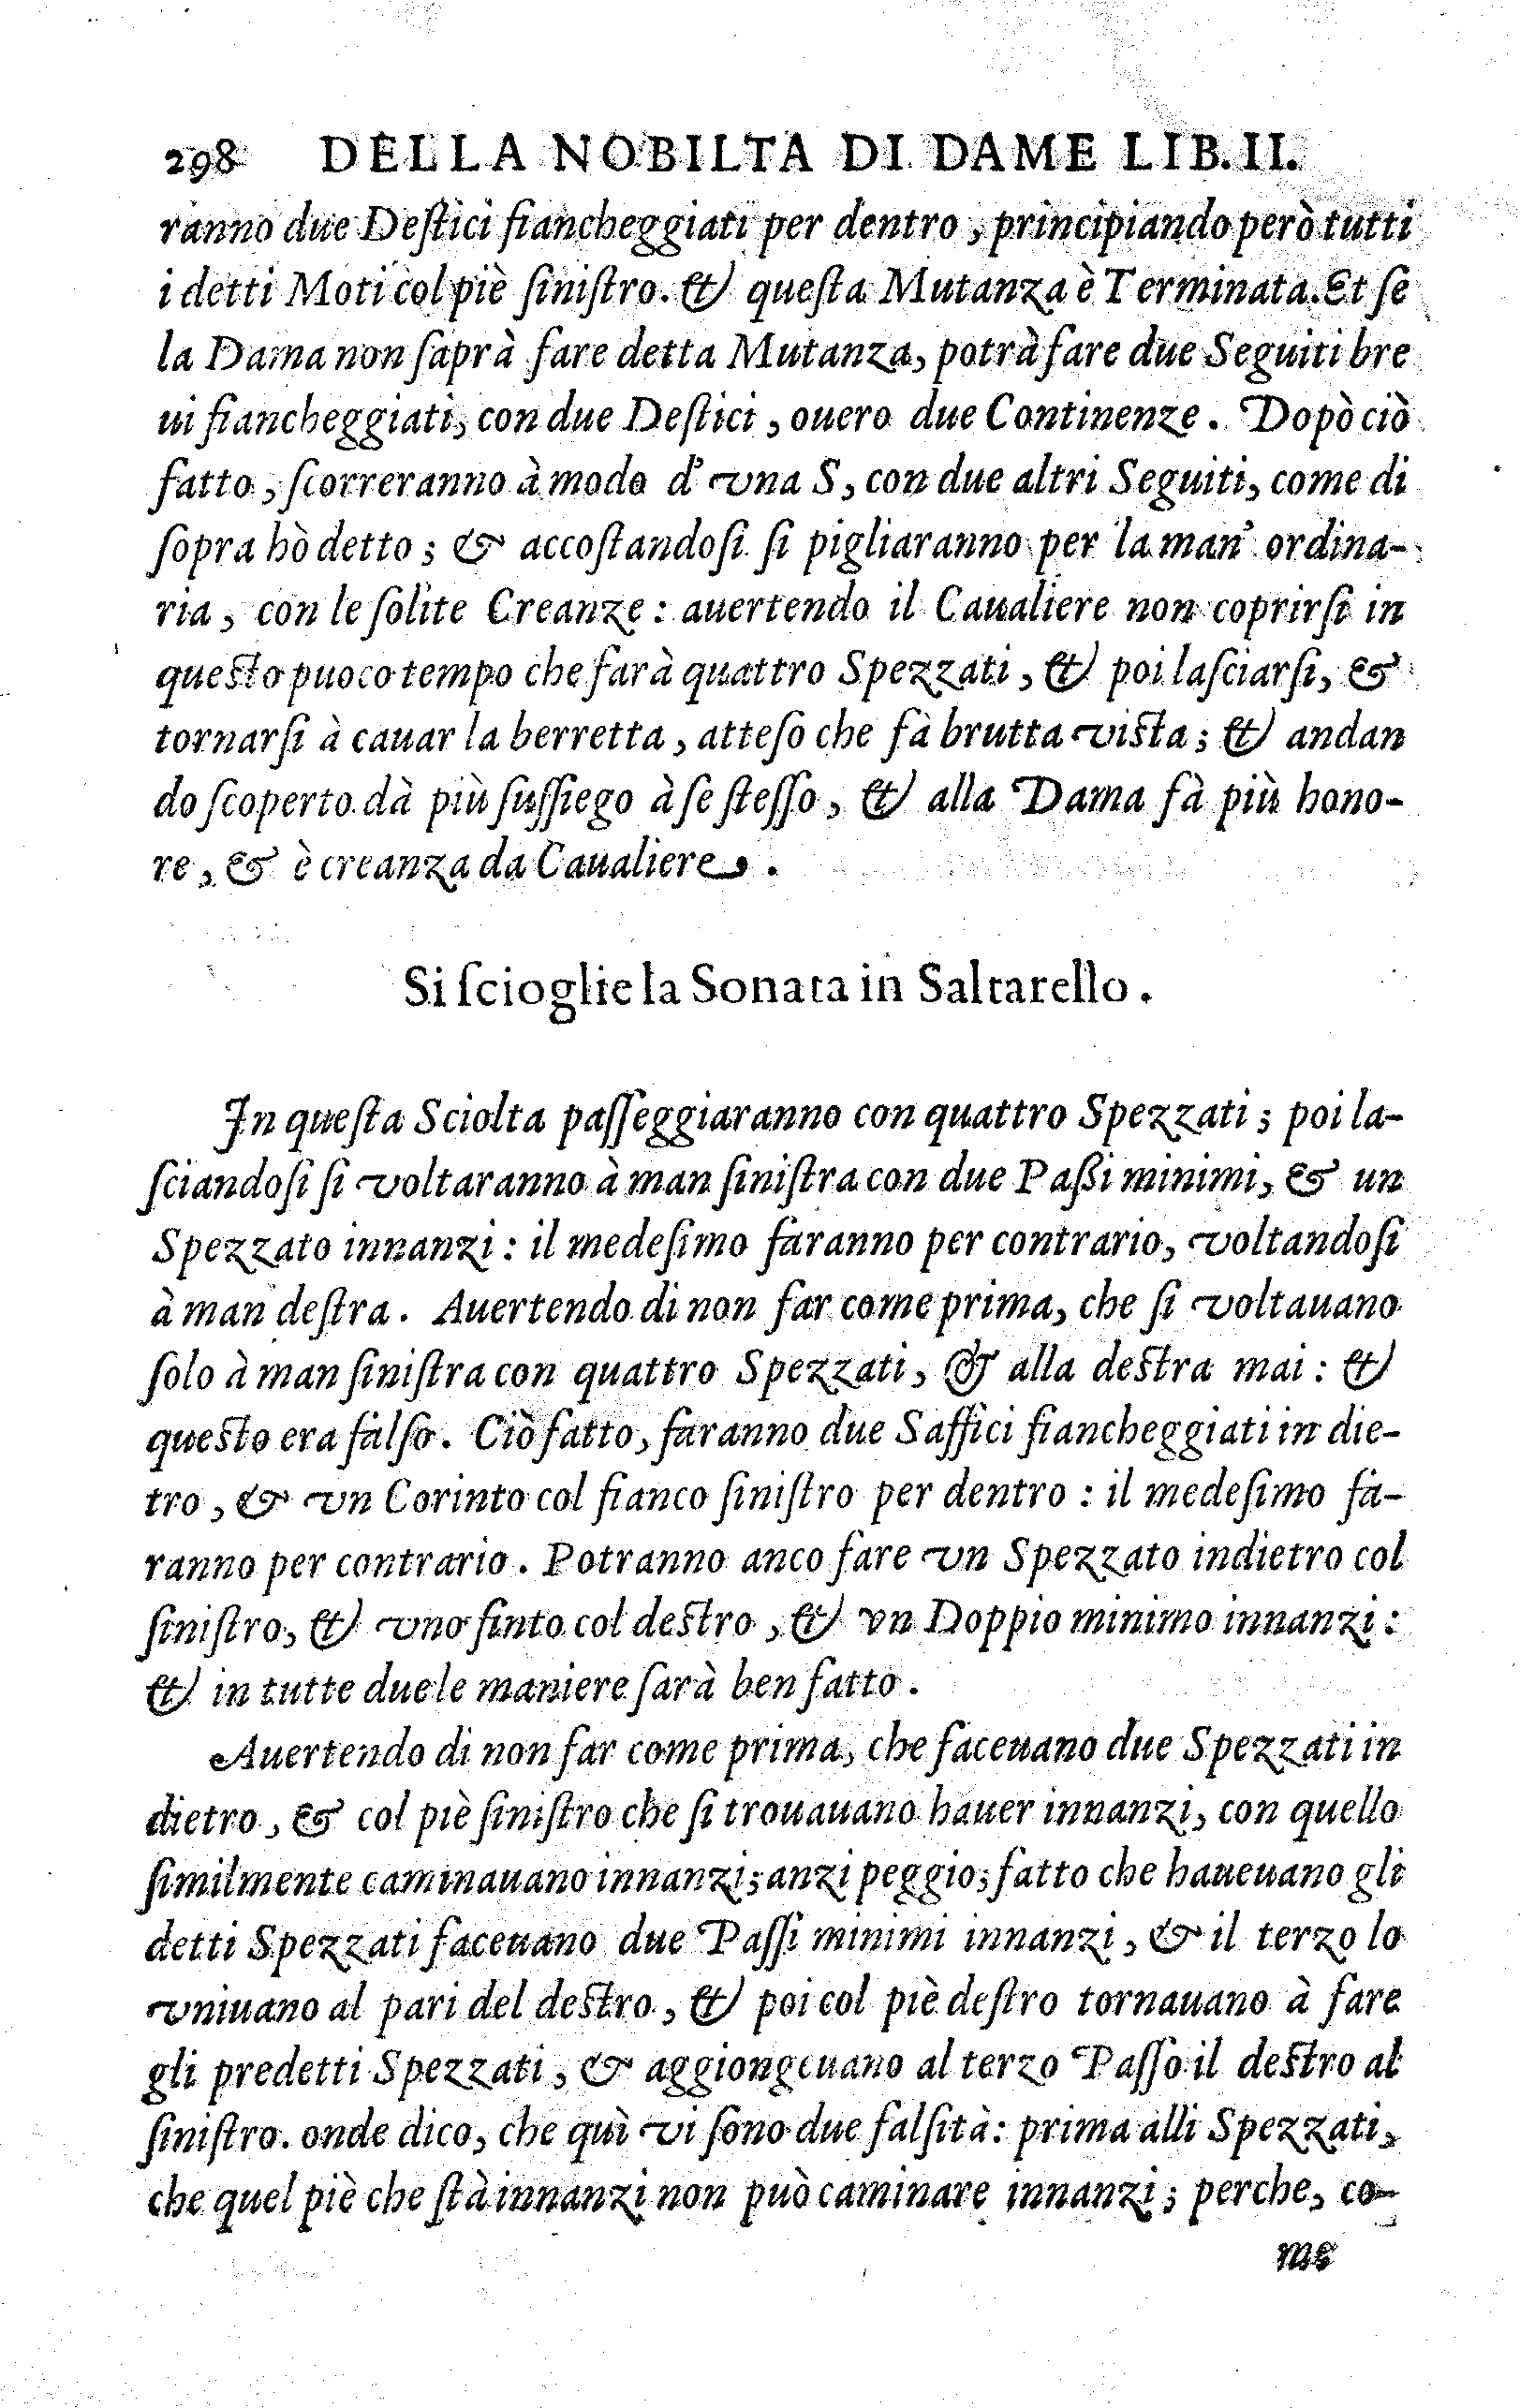 298 DELLA NOBILTA DI DAME LIB. II.
ranno due Deſtici fiancheggiati per dentro, principiando però tutti
i detti Moti col piè ſiniſtro. & queſta Mutanza è Terminata. Et ſe
la Dama non ſaprà fare detta Mutanza, potrà fare due Seguiti bre
ui fiancheggiati, con due Deſtici, ouero due Continenze. Dopò ciò
fatto, ſcorreranno à modo d' vna S, con due altri Seguiti, come di
ſopra hò detto; & accoſtandoſi ſi pigliaranno per la man' ordina-
ria, con le ſolite Creanze: auertendo il Caualiere non coprirſi in
queſto puoco tempo che farà quattro Spezzati, & poi laſciarſi, &
tornarſi à cauar la berretta, atteſo che fà brutta viſta; & andan
do ſcoperto dà più ſuſſiego à ſe ſteſſo, & alla Dama fà più hono-
re, & è creanza da Caualiere.
Si ſcioglie la Sonata in Saltarello.
In queſta Sciolta paſſeggiaranno con quattro Spezzati; poi la-
ſciandoſi ſi voltaranno à man ſiniſtra con due Paßi minimi, & un
Spezzato innanzi: il medeſimo faranno per contrario, voltandoſi
à man deſtra. Auertendo di non far come prima, che ſi voltauano
ſolo à man ſiniſtra con quattro Spezzati, & alla deſtra mai: &
queſto era falſo. Ciò fatto, faranno due Saffici fiancheggiati in die-
tro, & vn Corinto col fianco ſiniſtro per dentro: il medeſimo fa-
ranno per contrario. Potranno anco fare vn Spezzato indietro col
ſiniſtro, & vno finto col deſtro, & vn Doppio minimo innanzi:
& in tutte due le maniere ſarà ben fatto.
Auertendo di non far come prima, che faceuano due Spezzati in
dietro, & col piè ſiniſtro che ſi trouauano hauer innanzi, con quello
ſimilmente caminauano innanzi; anzi peggio; fatto che haueuano gli
detti Spezzati faceuano due Paſſi minimi innanzi, & il terzo lo
vniuano al pari del deſtro, & poi col piè deſtro tornauano à fare
gli predetti Spezzati, & aggiongeuano al terzo Paſſo il deſtro al
ſiniſtro. onde dico, che quì vi ſono due falſità: prima alli Spezzati,
che quel piè che ſtà innanzi non può caminare innanzi; perche, co-
me